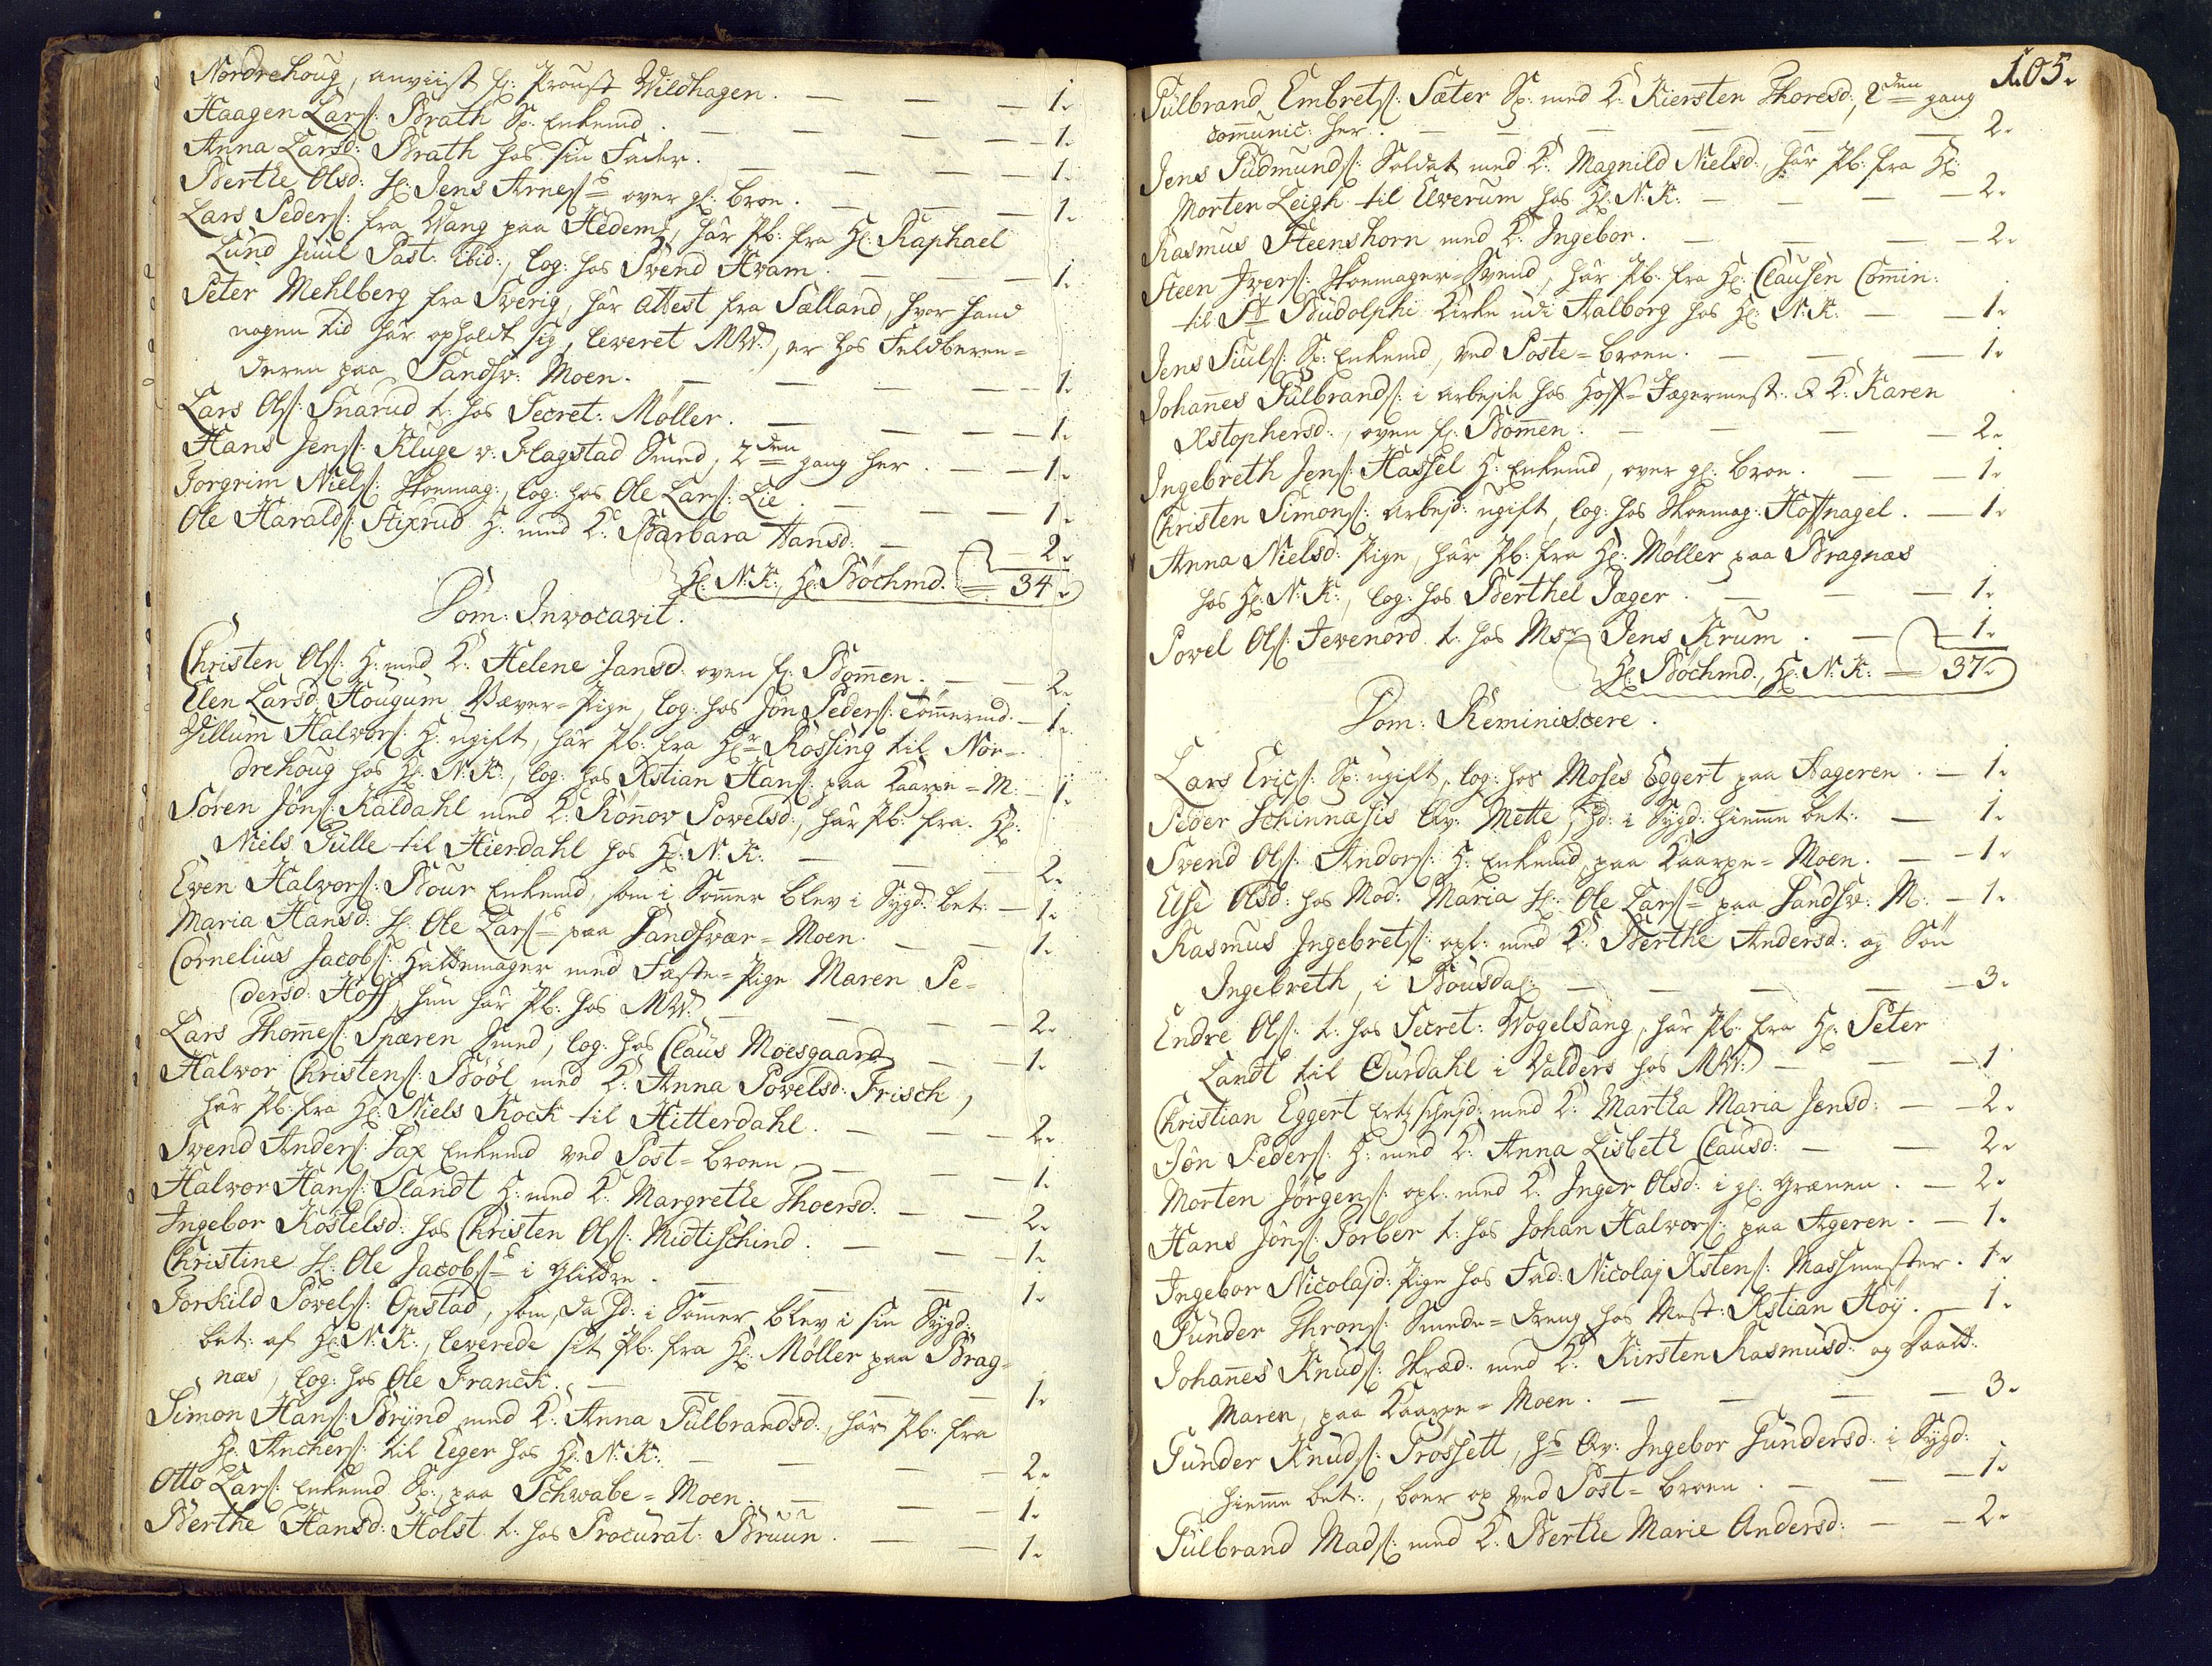 Nordrehoug, anviist Hr: Proust Wildhagen. — — — 1.
Haagen Lars: Brath Sp: Enkemd. — — — — 1.
Anna Larsd: Brath hos sin Fader. — — — 1.
Berthe Olsd: Jens Arnes: over gl: broe. — — — 1.
Lars Peders: fra Wang paa Hedem:, har Pb: fra Hr: Raphael
Lund Juul Past: ibid:, log: hos Svend Kram. — — — 1.
Peter Mehlberg fra Sverig, har attest fra Sælland, hvor hand
nogen tid har opholdt sig, leveret MW:, er hos Feldberen=
deren paa Sandsv: Moen. — — — — 1.
Lars Ols: Snarud t: hos Secret: Møller. — — — 1.
Hans Jens: Kluge v: Flagstad Smed, 2den gang her. — — 1.
Jorgrim Niels: Skoemag:, log: hos Ole Lars: Lie. — — 1.
Ole Haralds: Stixrud H: med K: Barbara Hansd: — — 2.
Hr: N: K:, Hr: Bochmd. = 34.
Dom: Invocavit.
Christen Ols: H: med K: Helene Jansd: oven f: Bommen. — — 2.
Elen Larsd: Hougum Væver=Pige, log: hos Jon Peders: Tømmermd: — 1.
Villum Halvors: H: ugift, har Pb: fra Hr: Rossing til Nor=
drehoug hos Hr: N: K:, log: hos Xstian Hans: paa Kaarpe=M: — 1.
Søren Jøns: Kaldahl med K: Ronnov Povelsd:, har Pb: fra Hr:
Niels Tulle til Hierdahl hos Hr: N: K: — — — 2.
Even Halvors: Bour Enkemd, som i Sommer blev i Sygd: bet: — 1.
Maria Hansd: Ole Lars: paa Sandsvær=Moen. — — 1.
Cornelius Jacobs: Hattemager med Fæste=Pige Maren Pe=
dersd: Hoff, hun har Pb: hos MW: — — — — 2.
Lars Thomes: Spæren Smed, log: hos Claus Moesgaard — — 1.
Halvor Christens: Bööl med K: Anna Povelsd: Frisch,
har Pb: fra Hr: Niels Kock til Hitterdahl. — — — 2.
Svend Anders: Sax Enkemd ved Post=broen. — — — 1.
Halvor Hans: Slandt H: med K: Margrethe Thoersd: — — 2.
Ingebor Kostelsd: hos Christen Ols: Midtischind. — — 1.
Christine Ole Jacobs: i Glidre. — — — 1.
Torkild Povels: Opstad, som, da Hd: i Sommer blev i sin Sygd:
bet: af Hr: N: K:, leverede sit Pb: fra Hr: Møller paa Brag=
næs, log: hos Ole Franck. — — — — 1.
Simon Hans: Brynd med K: Anna Gulbrandsd:, har Pb: fra
Hr: Anchers: til Eeger hos Hr: N: K: — — — 2.
Otto Lars: Enkemd Sp:, paa Schwabe=Moen. — — — 1.
Berthe Hansd: Holst t: hos Procurat: Bruun. — — 1.
105.
Gulbrand Embrets: Sæter Sp: med K: Kiersten Thoresd:, 2den gang
communic: her. — — — — — 2.
Jens Gudmunds: Soldat med K: Magnild Nielsd:, har Pb: fra Hr:
Morten Leigh til Elverum hos Hr: N: K: — — — 2.
Rasmus Steenshorn med K: Ingebor. — — — 2.
Steen Ivers: Skoemager=Svend, har Pb: fra Hr: Clausen Commin:
til St Budolphi Kirke udi Aalborg hos Hr: N: K: — — 1.
Jens Siuls: Sp: Enkemd, ved Poste=broen. — — — 1.
Johannes Gulbrands: i arbejde hos Hoff=Jægermest: & K: Karen
Xstophersd:, oven f: Bommen. — — — — 2.
Ingebreth Jens: Hassel H: Enkemd, over gl: broe. — — 1.
Christen Simons: arbejd: ugift, log: hos Skoemag: Hoffnagel. — 1.
Anna Nielsd: Pige, har Pb: fra Hr: Møller paa Bragnæs
hos Hr: N: K:, log: hos Berthel Jæger. — — — 1.
Povel Ols: Jevenord t: hos Msr Jens Krum. — — 1.
Hr: Bochmd., Hr: N: K: = 37.
Dom: Reminiscere.
Lars Erics: Sp: ugift, log: hos Moses Eggert paa Aageren. — 1.
Peder Schinnæsis Qv: Mette, Hd: i Sygd: hiemme bet: — 1.
Svend Ols: Andors: H: Enkemd, paa Kaarpe=Moen. — — 1.
Else Olsd: hos Mod: Maria Ole Lars: paa Sandsv: M: — 1.
Rasmus Ingebrets: opl: med K: Berthe Andersd: og Søn
Ingebreth, i Bousdal: — — — — 3.
Endre Ols: t: hos Secret: Vogelsang, har Pb: fra Hr: Peter
Landt til Ourdahl i Valders hos MW: — — — 1
Christian Eggert Ertzschejd: med K: Martha Maria Jensd: — — 2.
Jøn Peders: H: med K: Anna Lisbeth Clausd: — — 2.
Morten Jørgens: opl: med K: Inger Olsd: i gl: Grænen. — 2.
Hans Jøns: Forber t: hos Johan Halvors: paa Ageren. — 1.
Ingebor Nicolajd: Pige hos Fad: Nicolaj Xstens: Massmester. 1.
Gunder Throns: Smede=Dreng hos Mest: Xstian Høy. — 1.
Johannes Knuds: Skræd: med K: Kirsten Rasmusd: og Daatt:
Maren, paa Kaarpe=Moen. — — — — 3.
Gunder Knuds: Prossett, hs Qv: Ingebor Gundersd: i Sygd:
hiemme bet:, boer op ved Post=broen. — — — 1.
Gulbrand Mads: med K: Berthe Marie Andersd: — — 2.